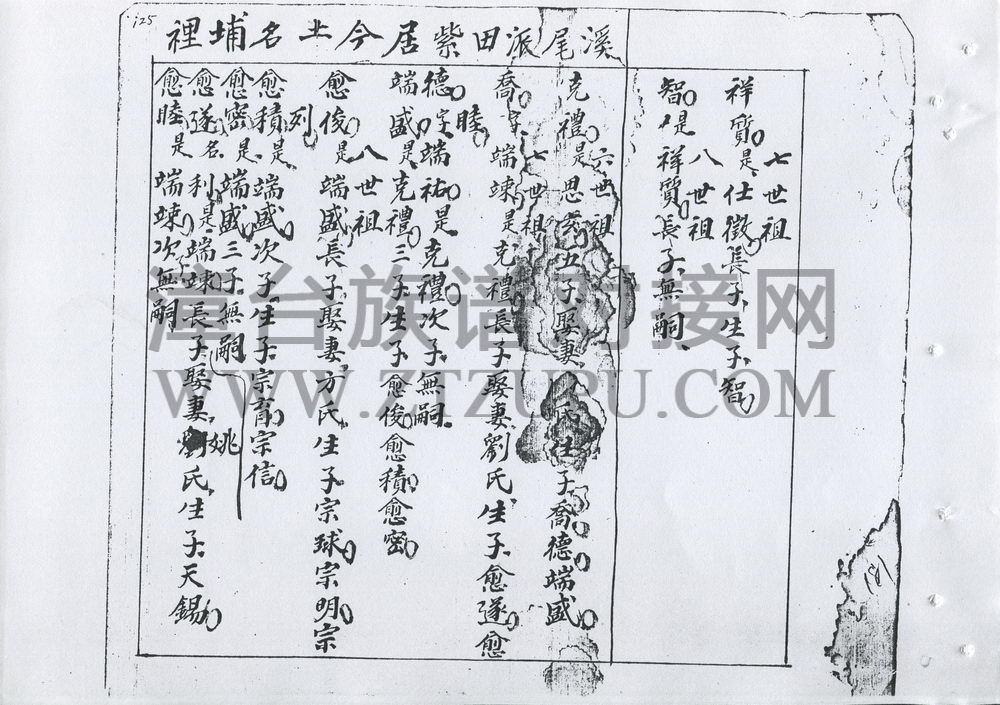 125
溪尾派田紫居今土名埔裡
七世祖
祥質是仕徵長子生子智
八世祖
智是祥質長子無嗣
六世祖
克禮是思 五子娶妻 氏生子喬德端盛
七世祖
喬字端竦是克禮長子娶妻劉氏生子愈遂愈
睦
德字端祐是克禮次子無嗣
端盛是克禮三子生子愈俊愈積愈密
八世祖
愈俊是端盛長子娶妻方氏生子宗球宗明宗
列
愈積是端盛次子生子宗育宗信
愈密是端盛三子無嗣
愈遂名利是端竦長子娶妻姚氏生子天錫
愈睦是端竦次子無嗣
漳台族谱对接网
WWW.ZTZUPU.COM